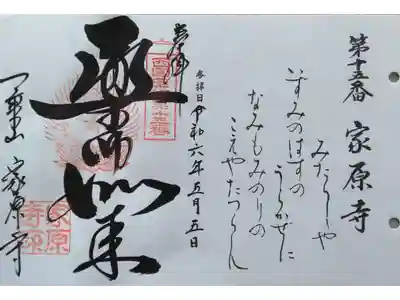 第十五番 家原寺
みたらしや
いずみのはすの
うらかぜに
なみもみのりの
こえやたつらん
参拝日 令和六年五月五日
奉拝
薬師如来
一乗山 家原寺
家原
寺印